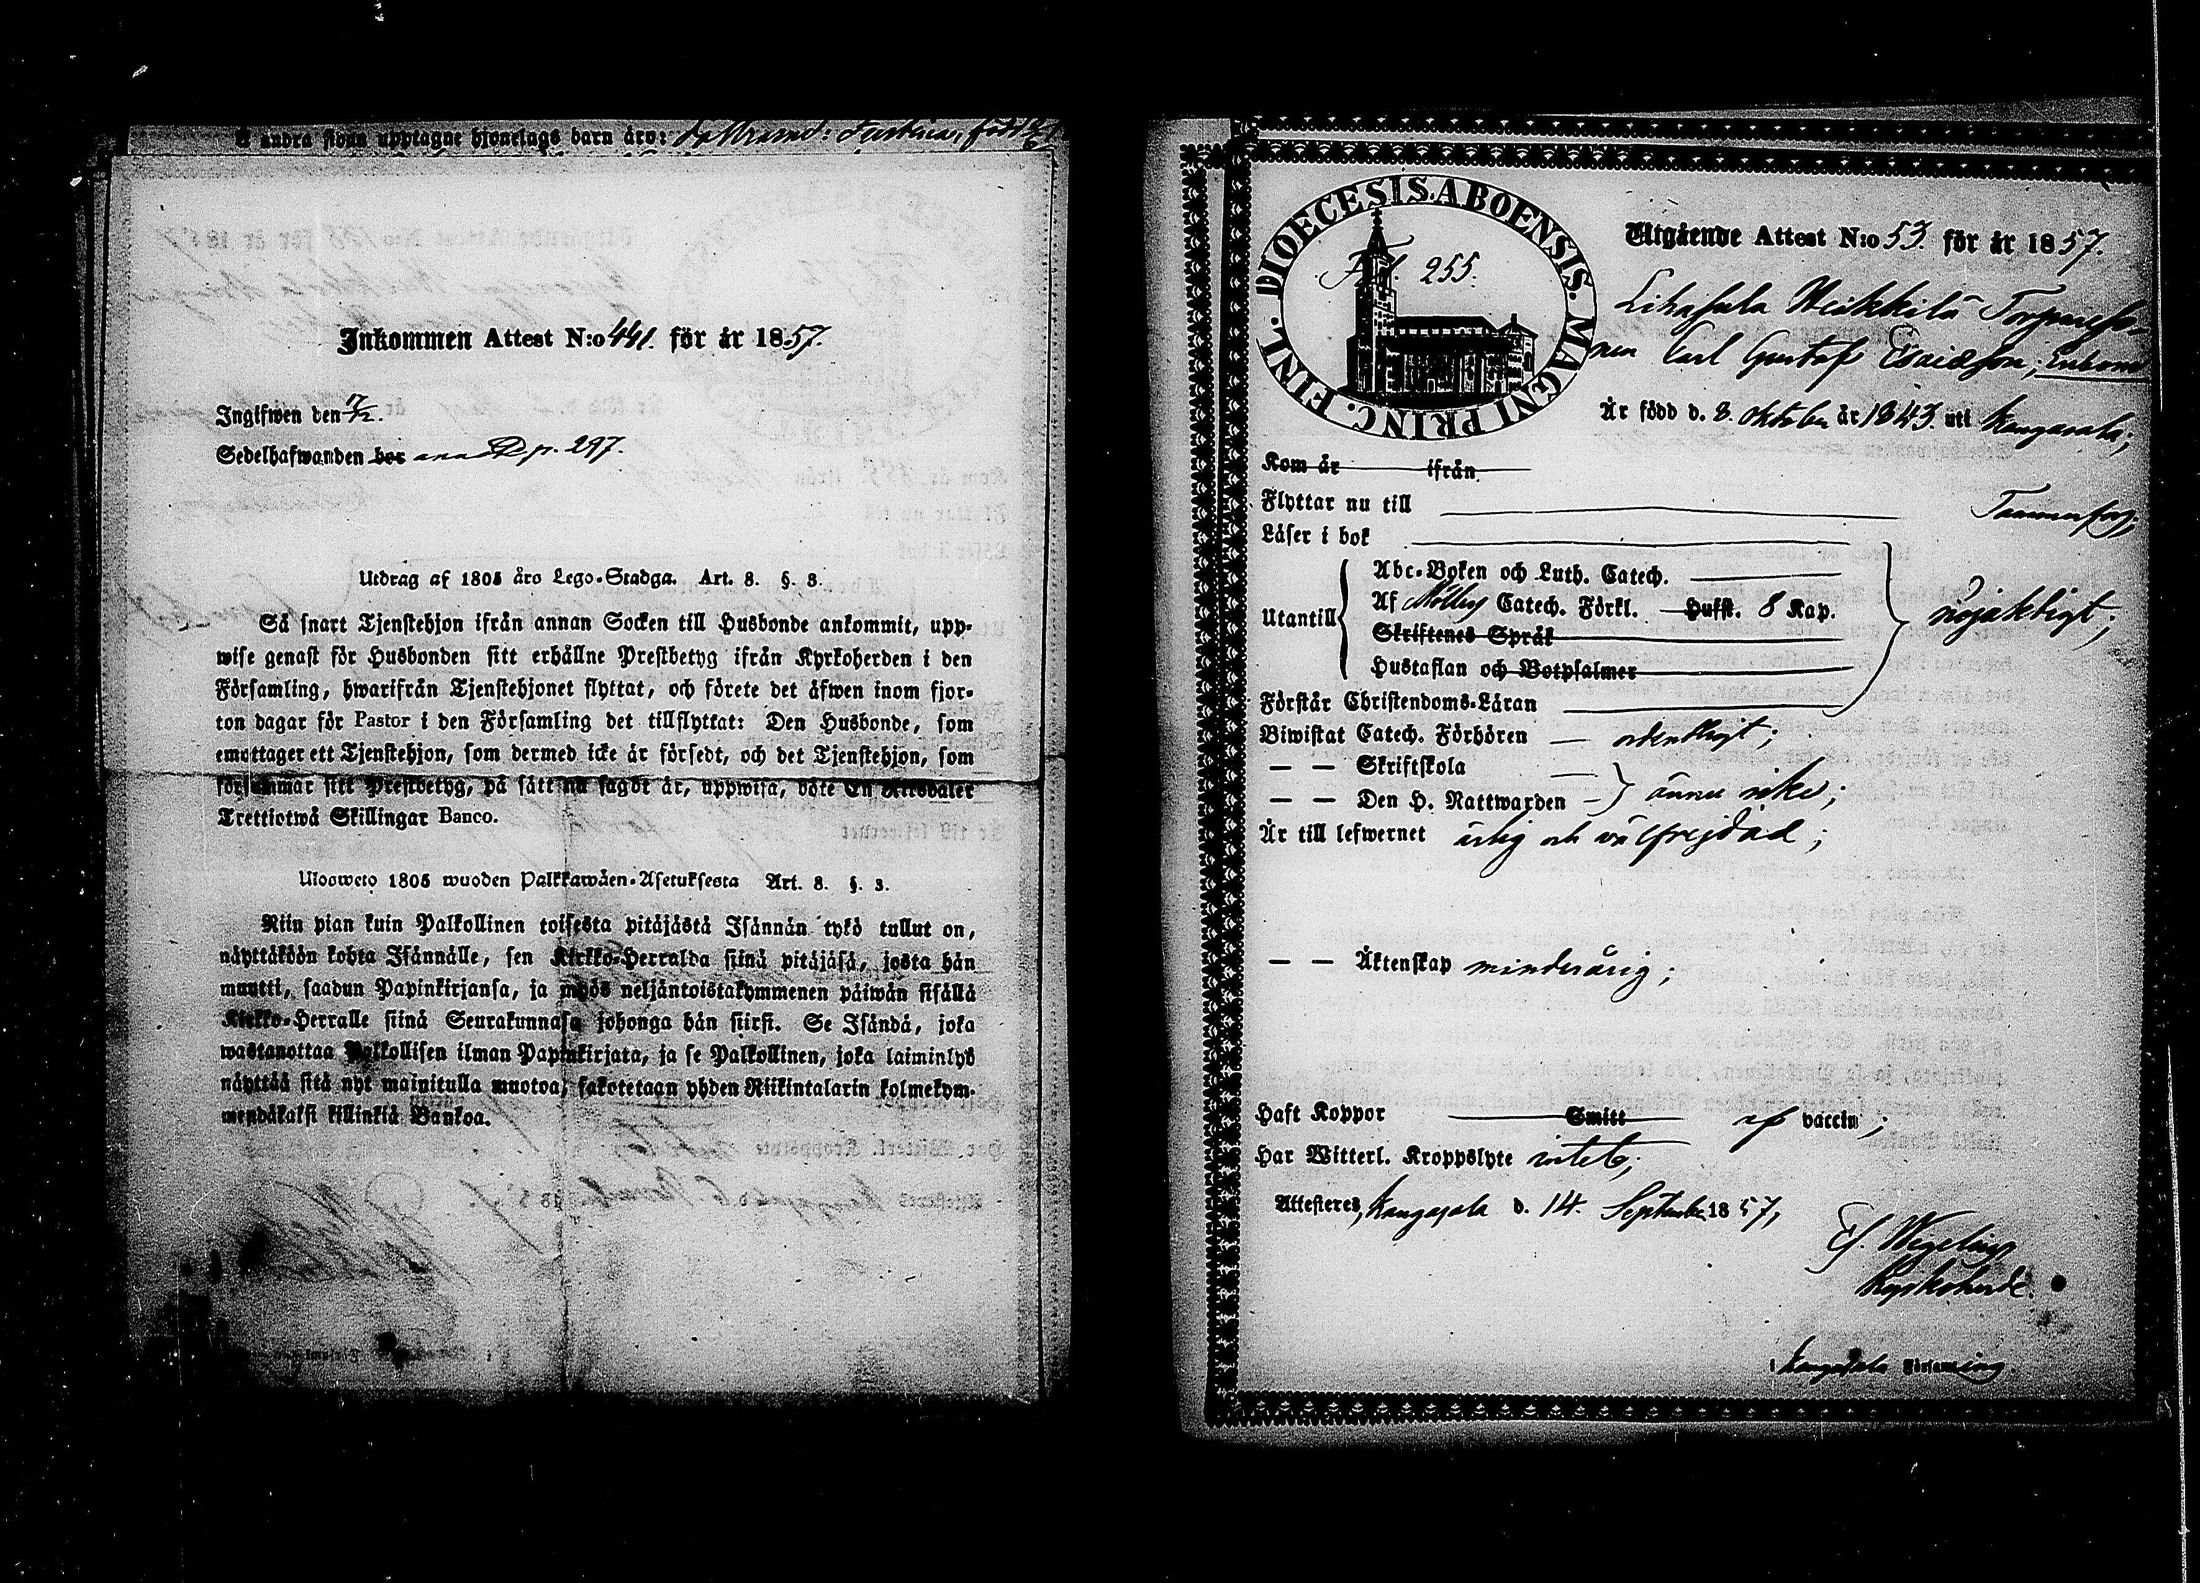 å andra sidan upptagne hjonelags barn äro: dottrarne: Justina, född
Inkommen Attest N:o 441. för år 1857.
Ingifwen den 7/12.
Sedelhafwanden bor p. 297.
Utdrag af 1805 åro Lego-Stadga. Art. 8. §. 3.
Så snart Tjenstehjon ifrån annan Socken till Husbonde ankommit, upp-
wise genast för Husbonden sitt erhållne Prestbetyg ifrån Kyrkoherden i den
Församling, hwarifrån Tjenstehjonet flyttat, och förete det äfwen inom fjor-
ton dagar för Pastor i den Församling det tillflyttat: Den Husbonde, som
emottager ett Tjenstehjon, som dermed icke är försedt, och det Tjenstehjon, som
försummar sitt Prestbetyg, på sätt nu sagdt är, uppwisa, böte En Riksdaler
Trettiotwå Skillingar Banco.
Ulosweto 1805 wuoden Palkkawäen-Asetuksesta Art. 8. §. 3.
Niin pian kuin Palkollinen toisesta pitäjästä Isännän tykö tullut on,
näyttäköön kohta Isännälle, sen Kirkko-Herralda siinä pitäjäsä, josta hän
muutti, saadun Papinkirjansa, ja myös neljäntoistakymmenen päiwän sisällä
Kirkko-Herralle siinä Seurakunnasa johonga hän siirsi. Se Isändä, joka
wastanottaa Palkollisen ilman Papinkirjata, ja se Palkollinen, joka laiminlyö
näyttää sitä nyt mainitulla muotoa, sakotetaan yhden Riikintalarin kolmekym-
mendäkaksi killinkiä Bankoa.
DIOECESIS. ABOENSIS. MAGNI PRINC. FINL.
Fol. 255.
Utgående Attest N:o 53. för år 1857.
Lihasula Heikkilä Torpareso-
nen Carl Gustaf Esaiasson,
Är född d. 8. oktober år 1843. uti Kangasala;
Kom år ifrån
Flyttar nu till Tammerfors;
Läser i bok
Utantill
Abc-Boken och Luth. Catech.
Af Möllers Catech. Förkl. Hufst. 8 Kap.
Skriftenes Språk
Hustaflan och Botpsalmer
nöjaktigt;
Förstår Christendoms-Läran
Biwistat Catech. Förhören — ordentligt;
— — Skriftskola
— — Den H. Nattwarden — ännu icke;
Är till lefwernet ärlig och wälfrejdad;
— — Äktenskap minderårig;
Haft Koppor Smitt af vaccin;
Har Witterl. Kroppslyte intet;
Attesteres, Kangasala d. 14. September 1857,
Ef. Wegelius
Kyrkoherde.
i Kangasala Församling.